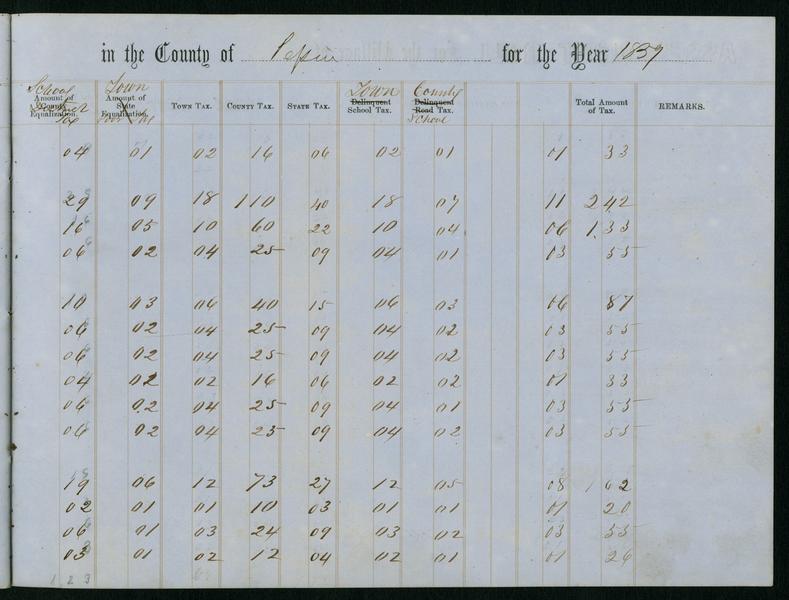 in the County of Pepin for the Year 1859
School Town Town County
Amount of County Equalization. Amount of State Equalization. Town Tax. County Tax. State Tax. Delinquent School Tax. Delinquent Road Tax. Total Amount of Tax. REMARKS.
School
04 01 02 16 06 02 01 01 33
29 09 18 110 40 18 07 11 242
16 05 10 60 22 10 04 06 1 33
06 02 04 25 09 04 01 03 55
10 03 06 40 15 06 03 06 87
06 02 04 25 09 04 02 03 55
06 02 04 25 09 04 02 03 55
04 02 02 16 06 02 02 01 33
06 02 04 25 09 04 01 03 55
06 02 04 25 09 04 02 03 55
19 06 12 73 27 12 05 08 1 62
02 01 01 10 03 01 01 01 20
06 01 03 24 09 03 02 03 55
03 01 02 12 04 02 01 01 26
1 2 3